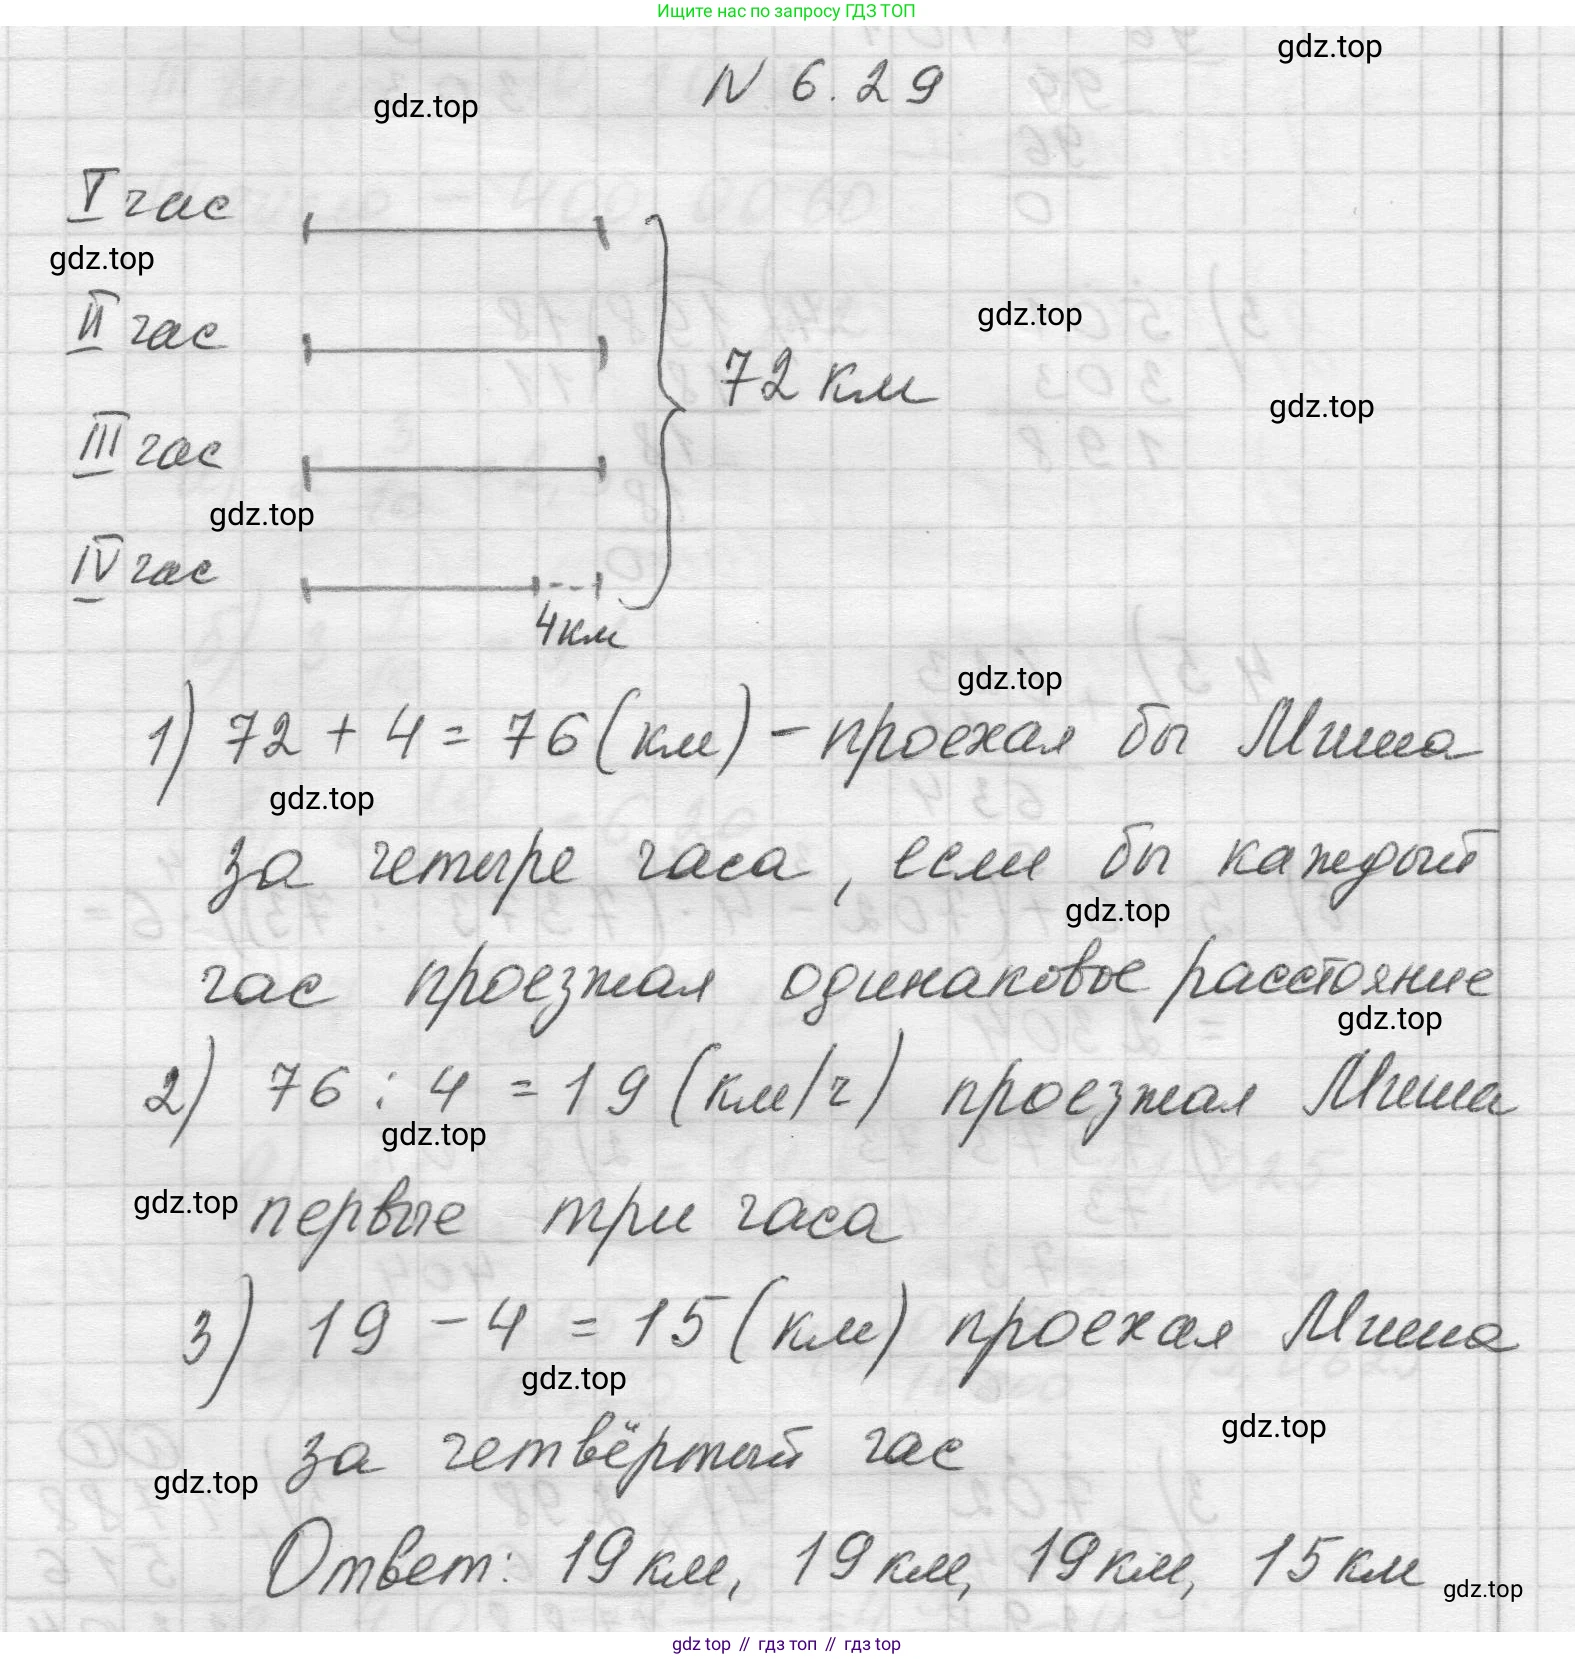 Ищите нас по запросу ГДЗ ТОП
gdz.top
N 6.29
gdz.top
I час
gdz.top
II час
gdz.top
72 км
gdz.top
III час
gdz.top
IV час
4км
gdz.top
1) 72 + 4 = 76 (км) - проехал бы Миша
gdz.top
за четыре часа, если бы каждый
gdz.top
час проезжал одинаковое расстояние
gdz.top
2) 76 : 4 = 19 (км/ч) проезжал Миша
gdz.top
gdz.top
первые три часа
3) 19 - 4 = 15 (км) проехал Миша
gdz.top
gdz.top
за четвёртый час
gdz.top
Ответ: 19 км, 19 км, 19 км, 15 км
gdz.top
gdz top // гдз топ // гдз top